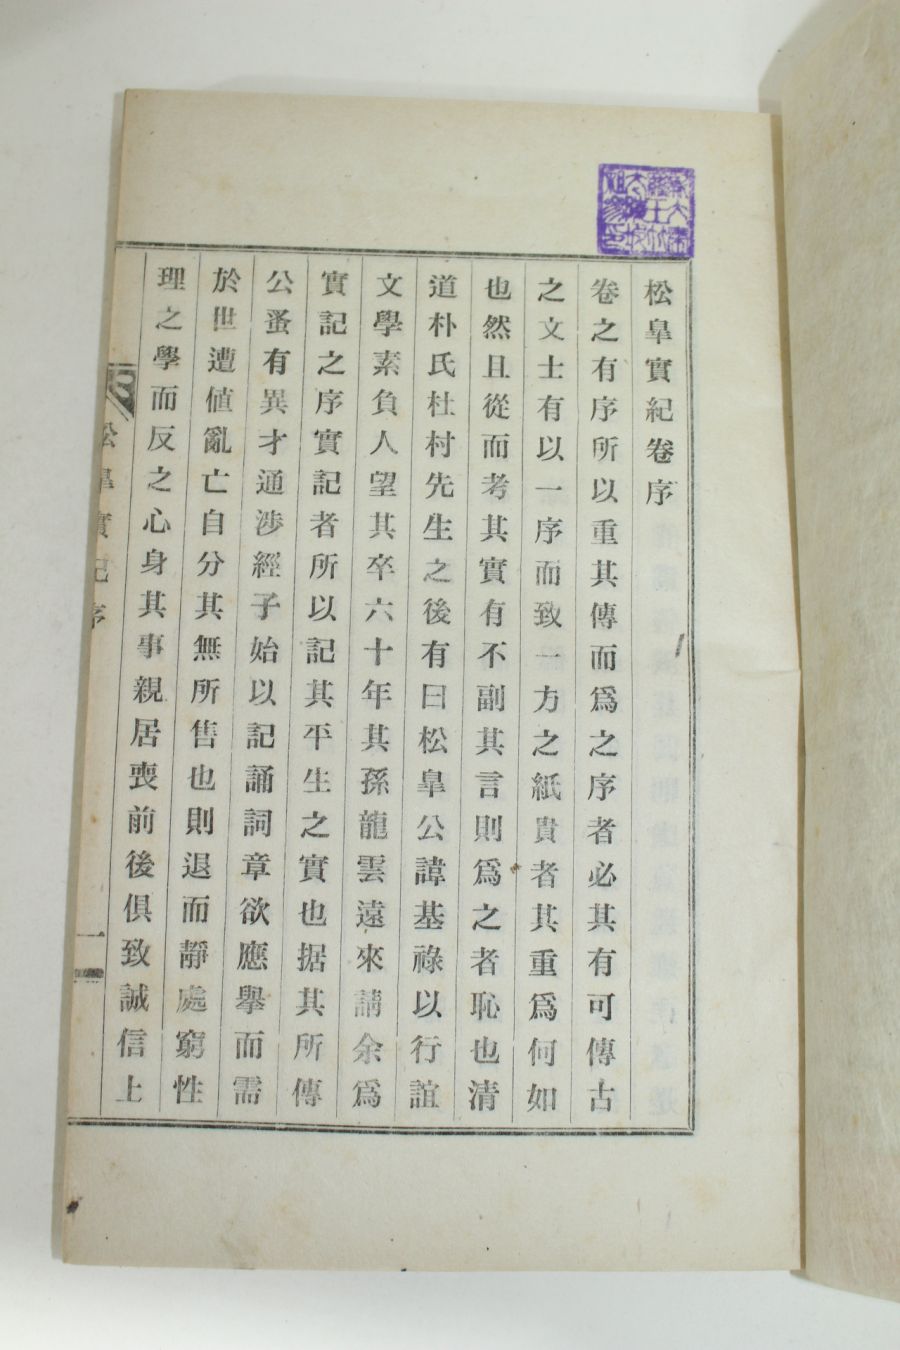 松臯實紀卷序
卷之有序所以重其傳而爲之序者必其有可傳古
之文士有以一序而致一方之紙貴者其重爲何如
也然且從而考其實有不副其言則爲之者恥也清
道朴氏杜村先生之後有曰松臯公諱基祿以行誼
文學素負人望其卒六十年其孫龍雲遠來請余爲
實記之序實記者所以記其平生之實也据其所傳
公蚤有異才通涉經子始以記誦詞章欲應擧而需
於世遭値亂亡自分其無所售也則退而靜處窮性
理之學而反之心身其事親居喪前後俱致誠信上
松臯實記序
一